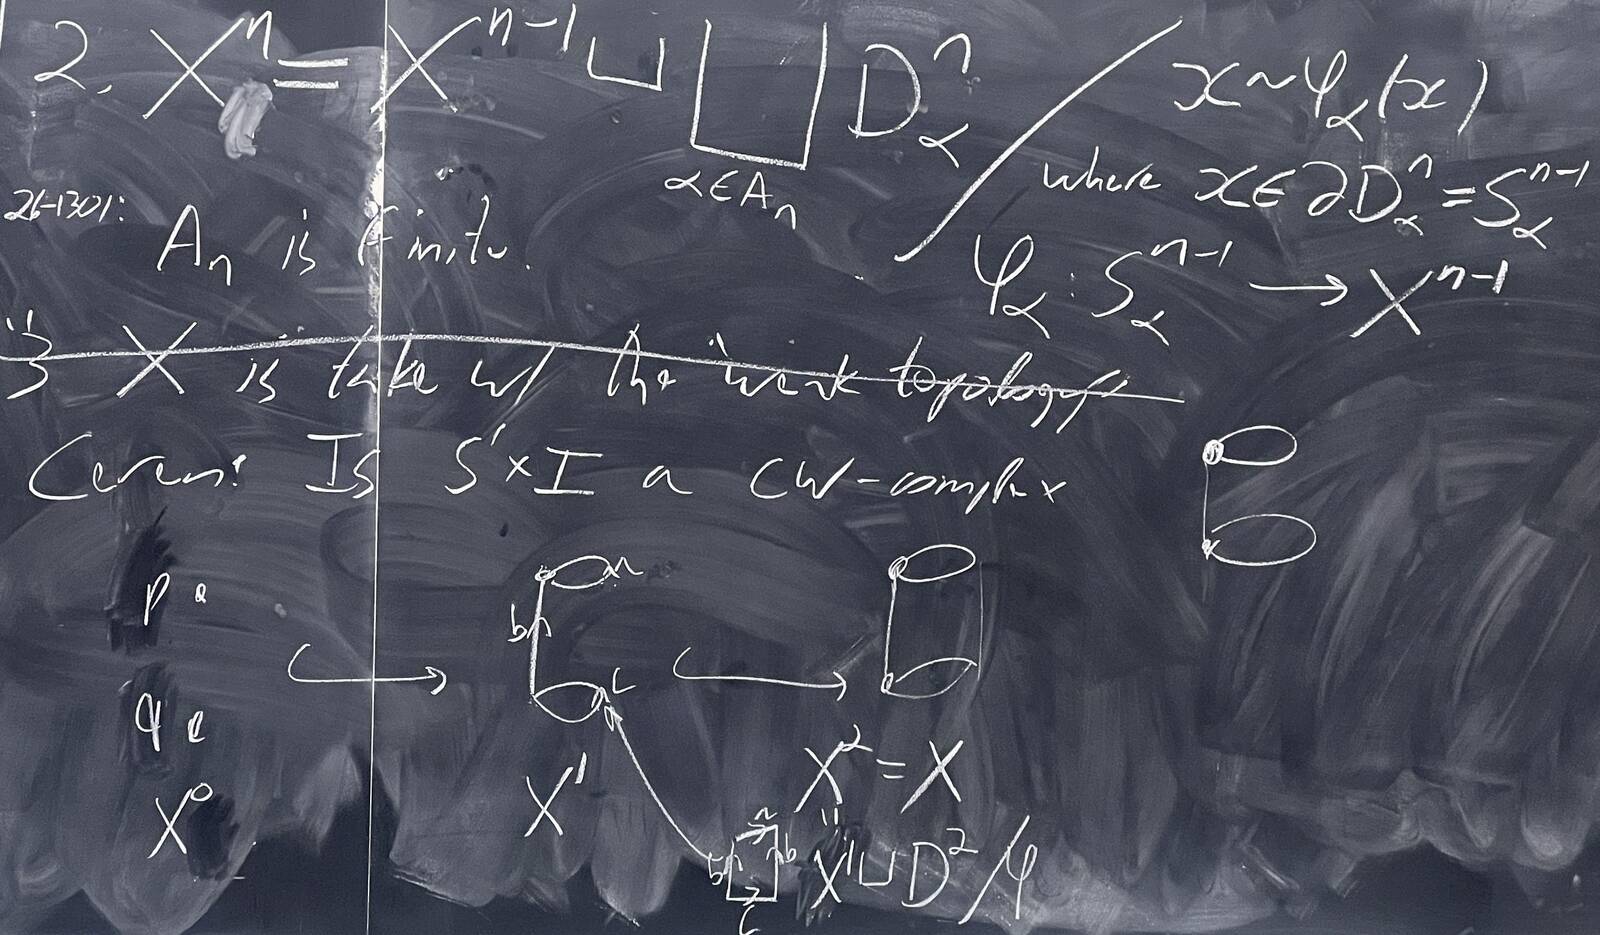 2. Xⁿ = Xⁿ⁻¹ ⊔ ⨆ Dⁿ_α / x ~ φ_α(x)
α∈A_n
where x∈∂Dⁿ_α = Sⁿ⁻¹_α
φ_α : Sⁿ⁻¹_α → Xⁿ⁻¹
A_n is finite.
3 X is take w/ the weak topology
Ceren: Is S¹×I a CW-complex
p
q
X⁰
a
b
c
X¹
X² = X
"
X¹ ⊔ D² / φ
a
b b
c